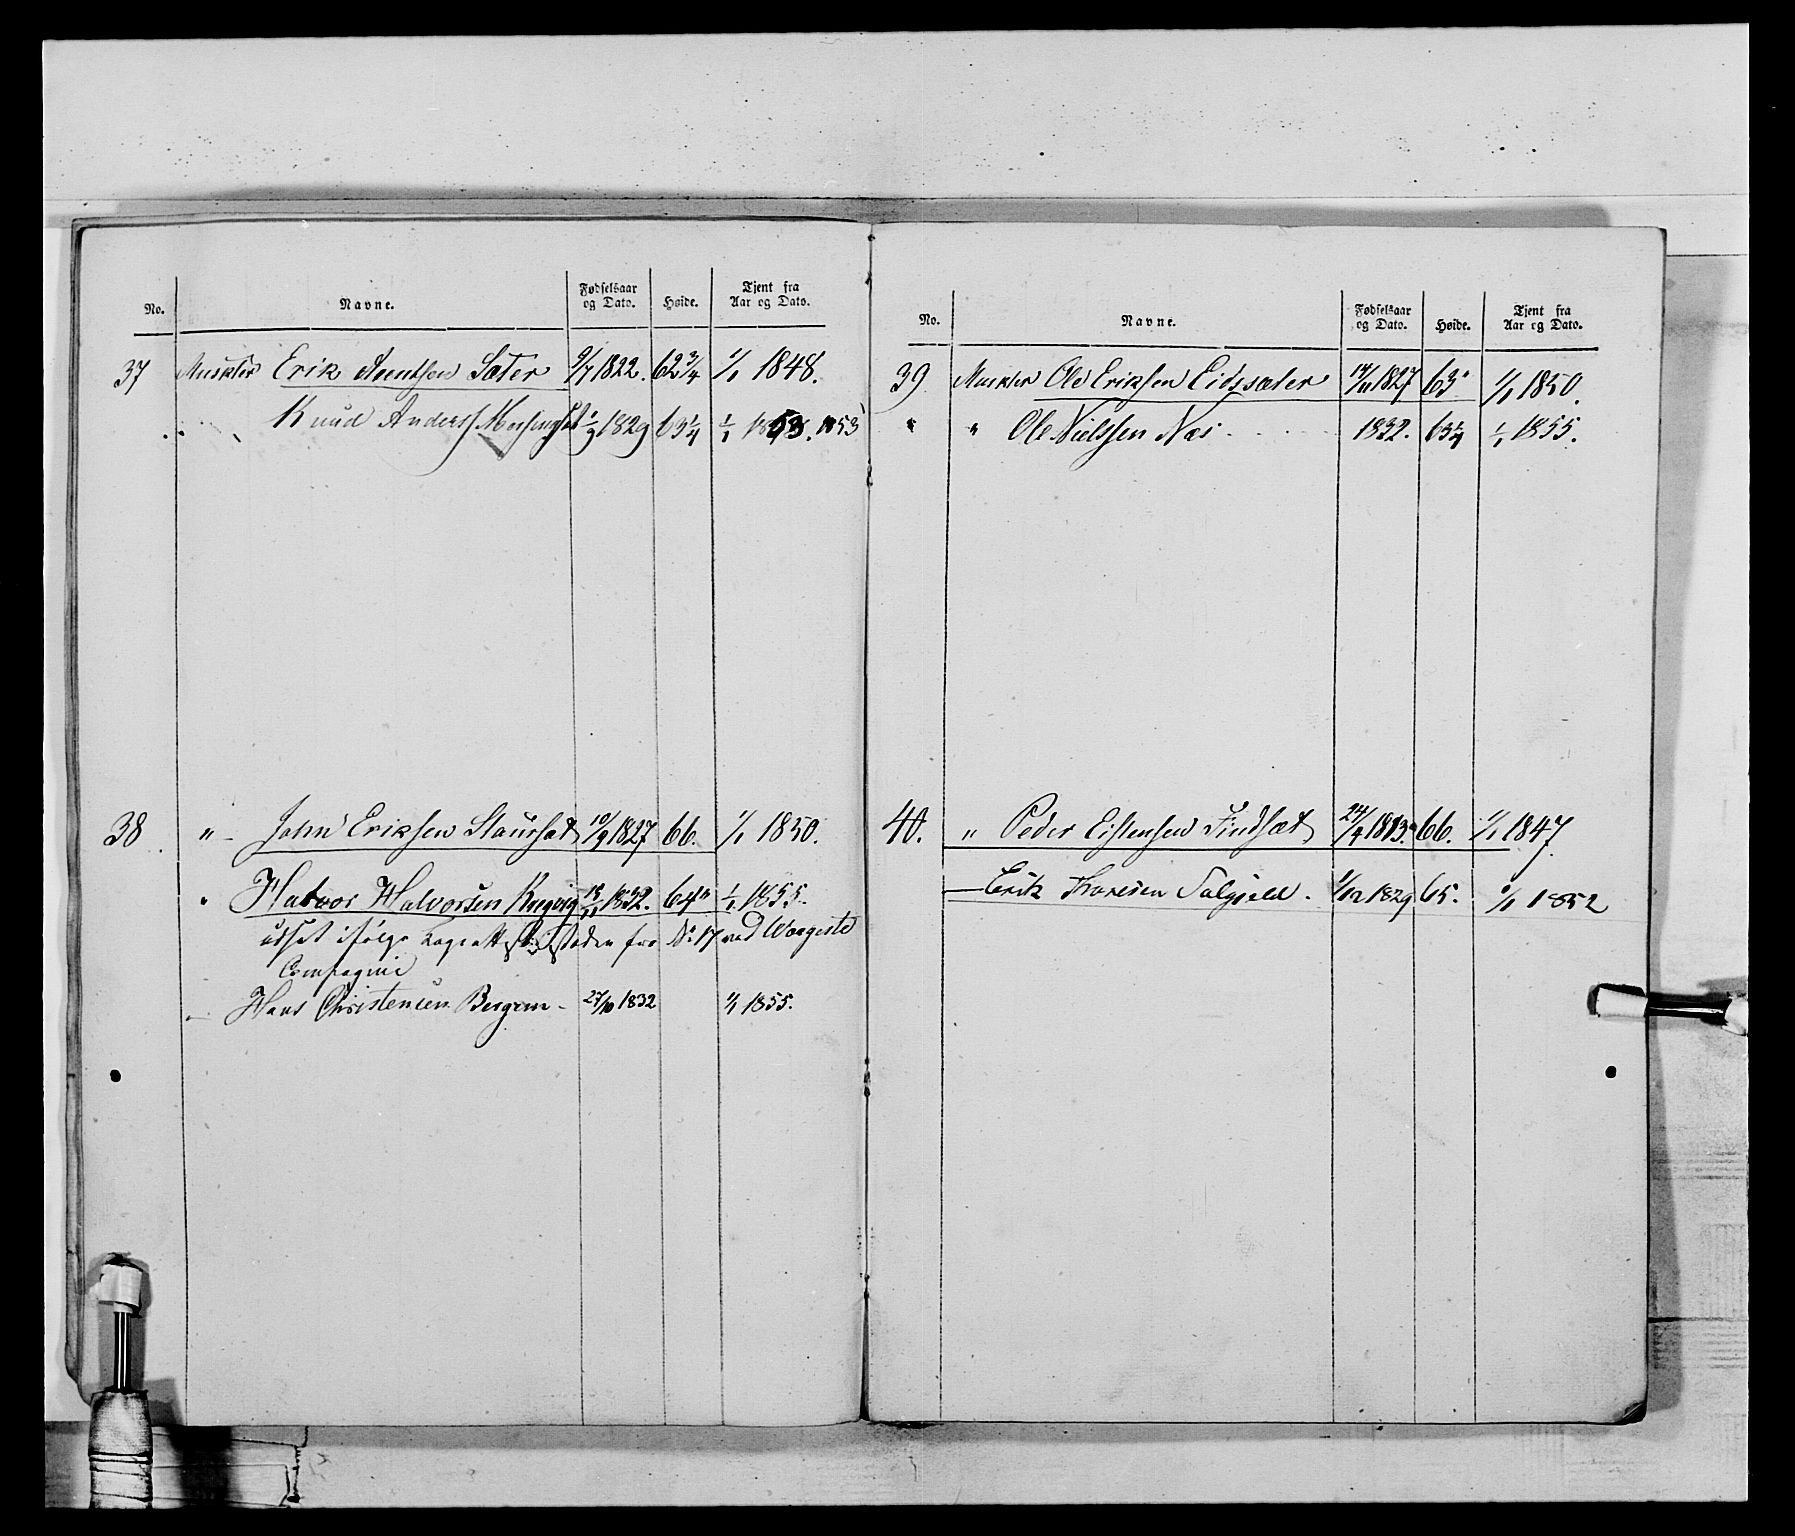 No. Navne. Fødselsaar og Dato. Høide. Tjent fra Aar og Dato.
37 Muskter Erik Aventsen Sæter 9/7 1822. 62 3/4 1/1 1848.
Knud Anderss. 1/9 1829 63 1/4 1/1 1853. 1853
38 " John Eriksen Staursæt 10/9 1827 66. 1/1 1850.
" Halvor Halvorsen Ringvig 1832. 64" 1/1 1855.
udsat ifølge Lægeatt i Steden for No 17 ved
Compagnie
Hans Christensen Bergem - 27/10 1832 1/1 1855.
No. Navne. Fødselsaar og Dato. Høide. Tjent fra Aar og Dato.
39 Muskter Ole Eriksen Eidssæter 14/11 1827 63" 1/1 1850.
" " Ole Nielssen Næs 1832. 63 1/4 1/1 1855.
40. " Peder Eistensen Findsæt 24/4 1813. 66. 1/1 1847.
Erik Thoresen Salgjeld. 1/12 1829 65. 1/1 1852